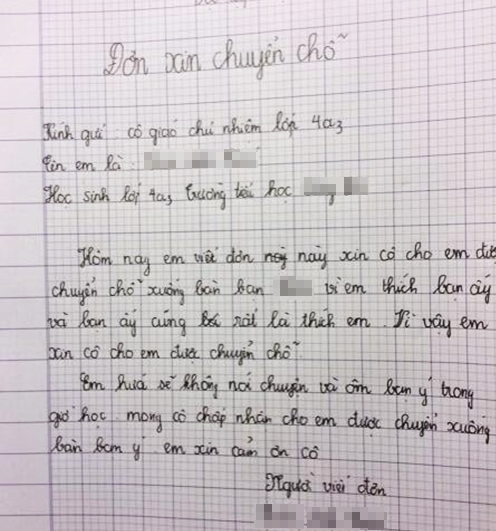 Đơn xin chuyển chỗ
Kính gửi cô giáo chủ nhiệm lớp 4a3
Tên em là:
Học sinh lớp 4a3 trường tiểu học
Hôm nay em viết đơn này xin cô cho em được
chuyển chỗ xuống bàn bạn vì em thích bạn ấy
và bạn ấy cũng rất là thích em. Vì vậy em
xin cô cho em được chuyển chỗ.
Em hứa sẽ không nói chuyện và ôm bạn ý trong
giờ học mong cô chấp nhận cho em được chuyển xuống
bàn bạn ý em xin cảm ơn cô
Người viết đơn